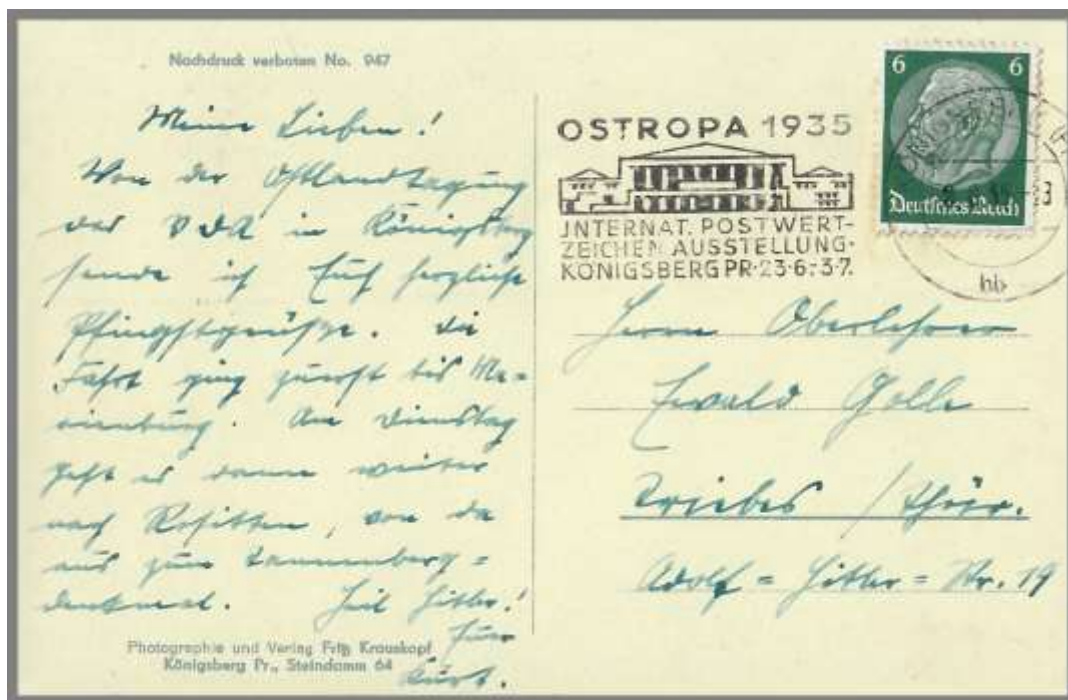 Nachdruck verboten No. 947
Meine Lieben!
Von der Ostlandtagung
des VDA in Königsberg
sende ich Euch herzliche
Pfingstgrüße. Die
Fahrt ging zuerst bis Ma-
rienburg. Am Dienstag
geht es dann weiter
nach Rositten, von da
aus zum Tannenberg=
denkmal. Heil Hitler!
Euer
Kurt.
Photographie und Verlag Fritz Krauskopf
Königsberg Pr., Steindamm 64
OSTROPA 1935
INTERNAT. POSTWERT-
ZEICHEN AUSSTELLUNG·
KÖNIGSBERG PR·23·6·-3·7.
6 6
Deutsches Reich
hb
Herrn Oberlehrer
Ewald Golle
Triebes / Thür.
Adolf = Hitler = Str. 19